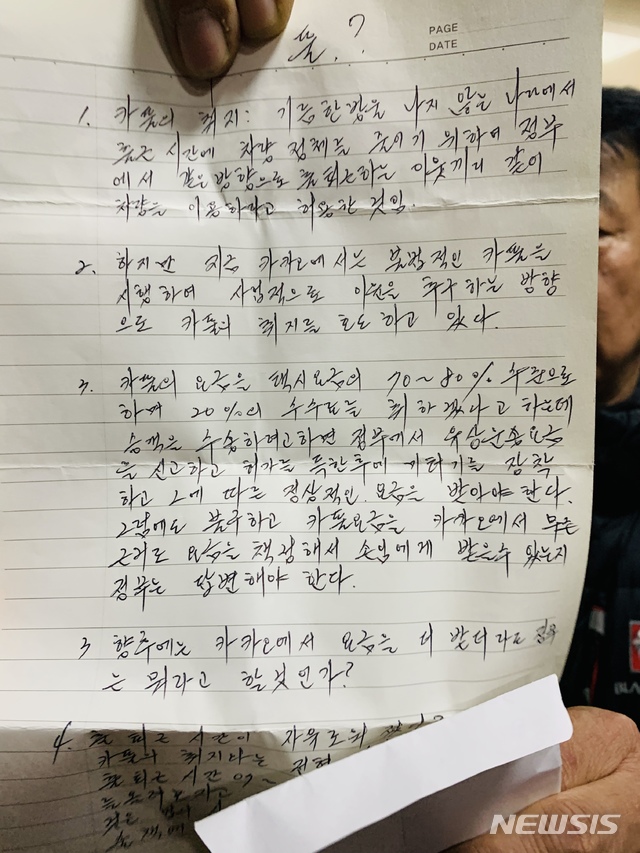 PAGE
DATE
?
1. 카풀의 취지: 기름한방울 나지 않는 나라에서
출근 시간에 차량 정체를 줄이기 위하여 정부
에서 같은방향으로 출퇴근하는 이웃끼리 같이
차량을 이용하라고 허용한 것임.
2. 하지만 지금 카카오에서는 불법적인 카풀을
시행하여 사업적으로 이윤을 추구하는 방향
으로 카풀의 취지를 호도하고 있다.
3. 카풀의 요금을 택시요금의 70~80% 수준으로
하며 20%의 수수료를 취하겠다고 하는데
승객을 수송하려고하면 정부에서 유상운송요금
을 신고하고 허가를 득한후에 메터기를 장착
하고 그에 따른 정상적인 요금을 받아야 한다.
그럼에도 불구하고 카풀요금을 카카오에서 무슨
근거로 요금을 책정해서 손님에게 받을수 있는지
정부는 답변해야 한다.
3 향후에는 카카오에서 요금을 더 받더라도 정부
는 뭐라고 할것인가?
4. 출퇴근 시간이 자유로워
카풀의 취지라는
출퇴근 시간
BLA
NEWSIS